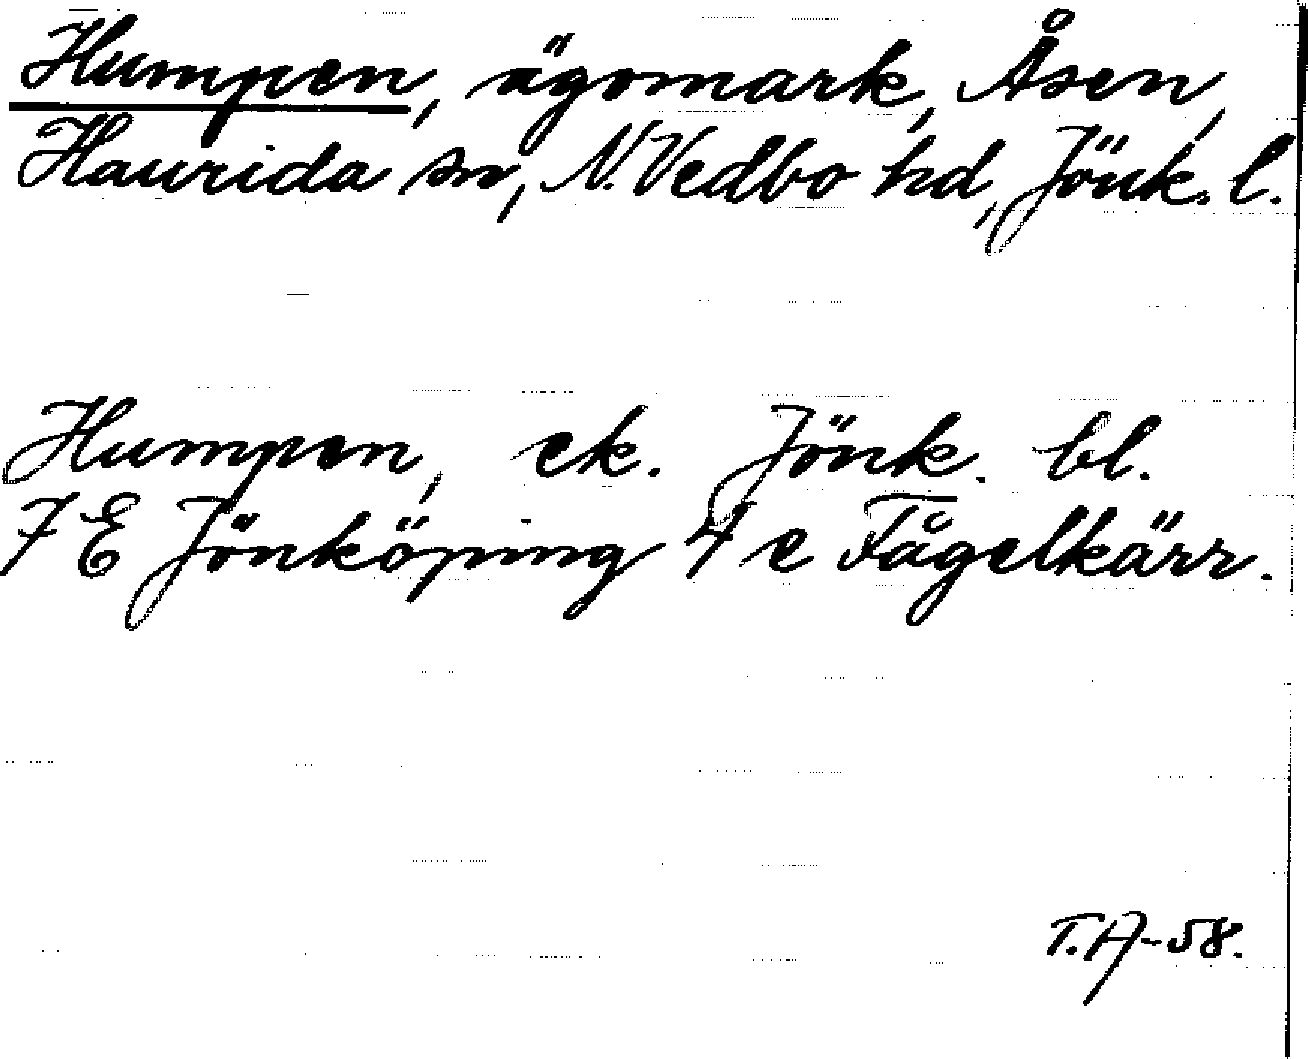 Humpen, ägomark, Åsen,
Haurida sn, N. Vedbo hd, Jönk. l.
Humpen, ek. Jönk. bl.
7 E Jönköping 4 e Fågelkärr.
T.A-58.